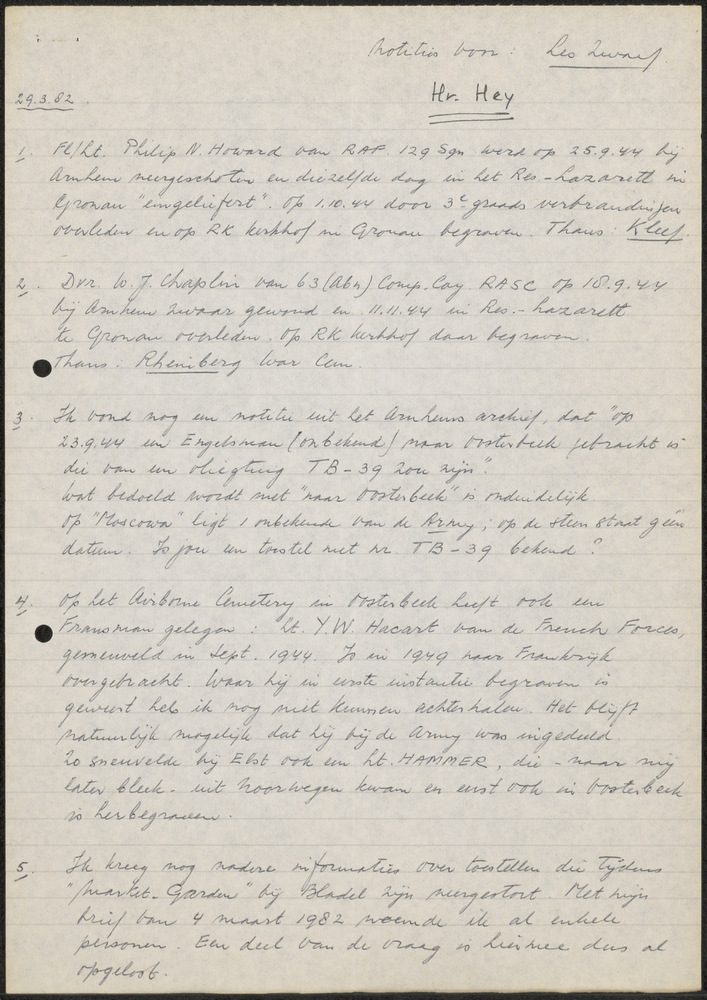 Notities voor: Leo Zwaaf.
29.3.82.
Hr. Hey
1. Fl/Lt. Philip N. Howard van RAF. 129 Sqn werd op 25.9.44 bij
Arnhem neergeschoten en diezelfde dag in het Res.-Lazarett in
Gronau "eingeliefert". Op 1.10.44 door 3e graads verbrandingen
overleden en op RK kerkhof in Gronau begraven. Thans: Kleef.
2. Dvr. W.J. Chaplin van 63 (Abn) Comp. Coy RASC op 18.9.44
bij Arnhem zwaar gewond en 11.11.44 in Res.-Lazarett
te Gronau overleden. Op RK kerkhof daar begraven.
Thans: Rheinberg War Cem.
3. Ik vond nog een notitie uit het Arnhems archief, dat "op
23.9.44 een Engelsman (onbekend) naar Oosterbeek gebracht is
die van een vliegtuig TB-39 zou zijn".
Wat bedoeld wordt met "naar Oosterbeek" is onduidelijk.
Op "Moscowa" ligt 1 onbekende van de Army; op de steen staat géén
datum. Is jou een toestel met nr. TB-39 bekend?
4. Op het Airborne Cemetery in Oosterbeek heeft ook een
Fransman gelegen: Lt. Y.W. Hacart van de French Forces,
gesneuveld in Sept. 1944. Is in 1949 naar Frankrijk
overgebracht. Waar hij in eerste instantie begraven is
geweest heb ik nog niet kunnen achterhalen. Het blijft
natuurlijk mogelijk dat hij bij de Army was ingedeeld.
Zo sneuvelde bij Elst ook een Lt. HAMMER, die - naar mij
later bleek - uit Noorwegen kwam en eerst ook in Oosterbeek
is herbegraven.
5. Ik kreeg nog nadere informaties over toestellen die tijdens
"Market-Garden" bij Bladel zijn neergestort. Met mijn
brief van 4 maart 1982 noemde ik al enkele
personen. Een deel van de vraag is hiermee dus al
opgelost.